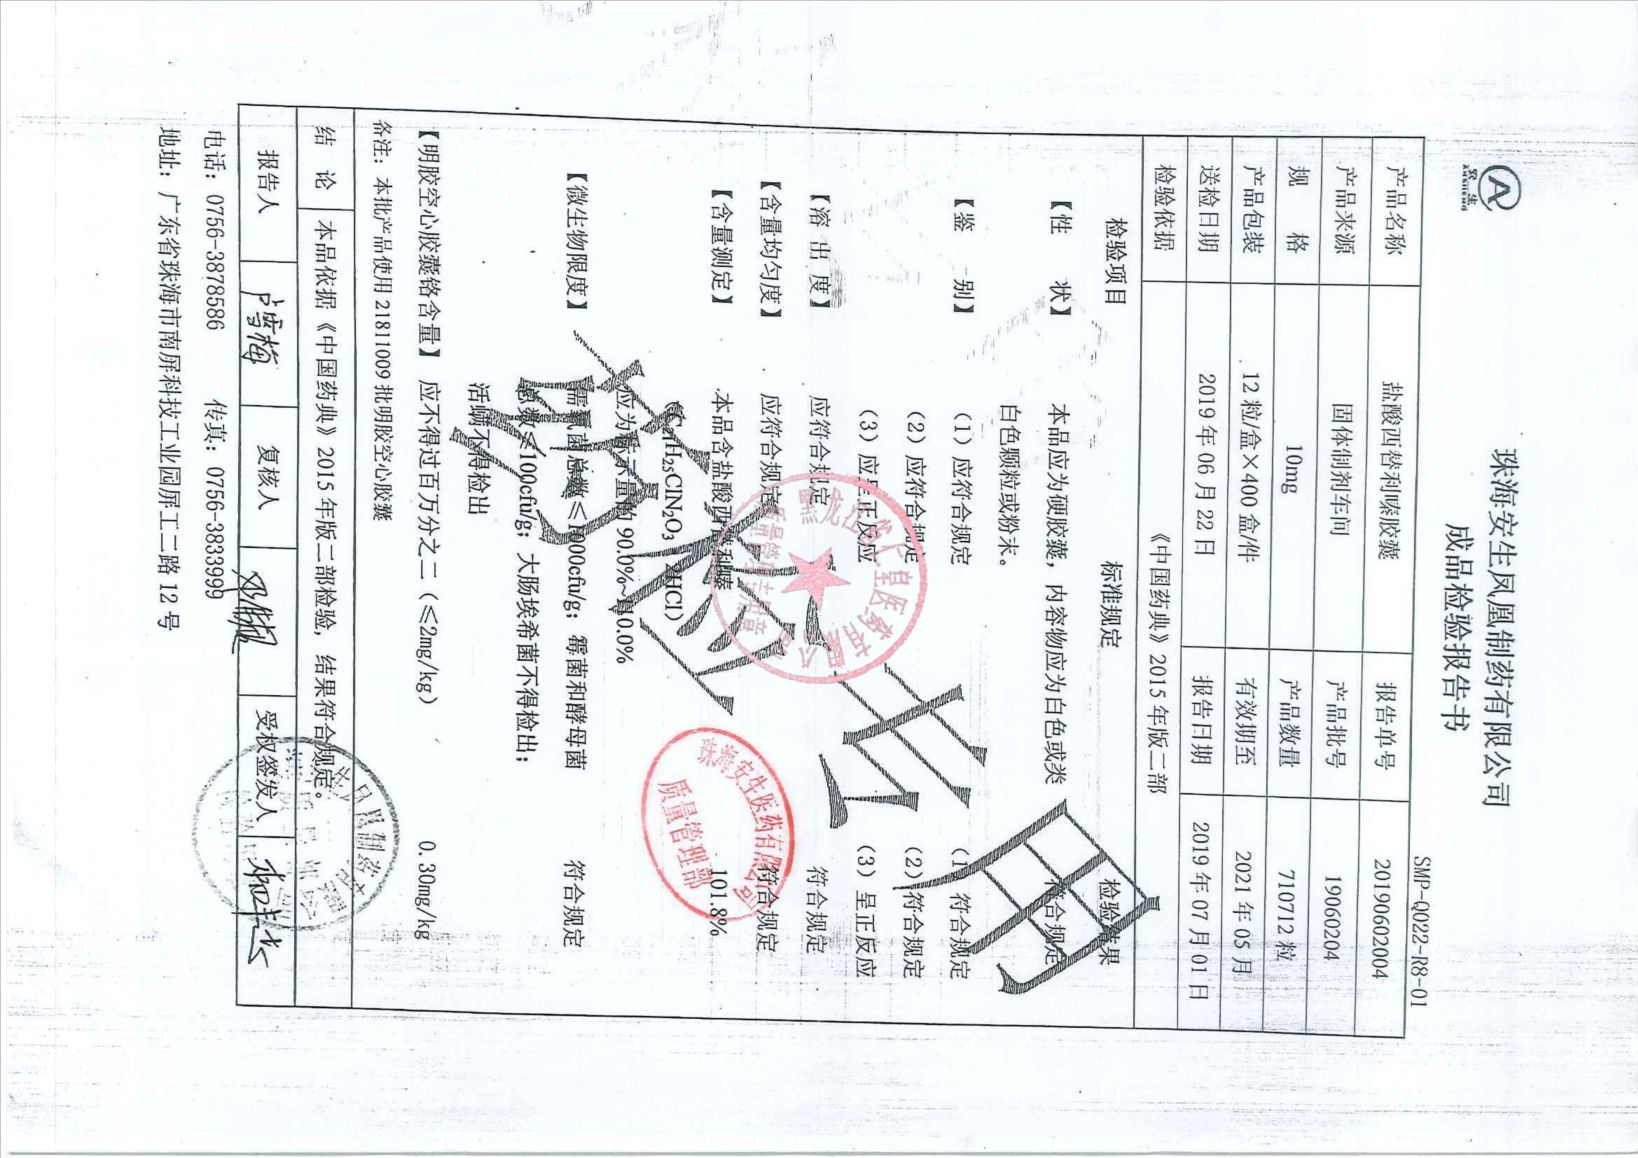 安生
ANSHENG
珠海安生凤凰制药有限公司
成品检验报告书
SMP-Q022-R8-01
产品名称 盐酸西替利嗪胶囊 报告单号 20190602004
产品来源 固体制剂车间 产品批号 19060204
规 格 10mg 产品数量 710712 粒
产品包装 12 粒/盒×400 盒/件 有效期至 2021 年 05 月
送检日期 2019 年 06 月 22 日 报告日期 2019 年 07 月 01 日
检验依据 《中国药典》2015 年版二部
检验项目 标准规定 检验结果
【性 状】 本品应为硬胶囊，内容物应为白色或类 符合规定
白色颗粒或粉末。
【鉴 别】 （1）应符合规定 （1）符合规定
（2）应符合规定 （2）符合规定
（3）应呈正反应 （3）呈正反应
【溶 出 度】 应符合规定 符合规定
【含量均匀度】 应符合规定 符合规定
【含量测定】 本品含盐酸西替利嗪 101.8%
H25ClN2O3 2HCl）
应为标示量的 90.0%~110.0%
【微生物限度】 需氧菌总数≤1000cfu/g；霉菌和酵母菌 符合规定
总数≤100cfu/g；大肠埃希菌不得检出；
活螨不得检出
【明胶空心胶囊铬含量】 应不得过百万分之二（≤2mg/kg） 0.30mg/kg
备注：本批产品使用 21811009 批明胶空心胶囊
结 论 本品依据《中国药典》2015 年版二部检验，结果符合规定。
报告人 复核人 受权签发人
电话：0756-3878586 传真：0756-3833999
地址：广东省珠海市南屏科技工业园屏工二路 12 号
珠海安生医药有限公司
质量管理部